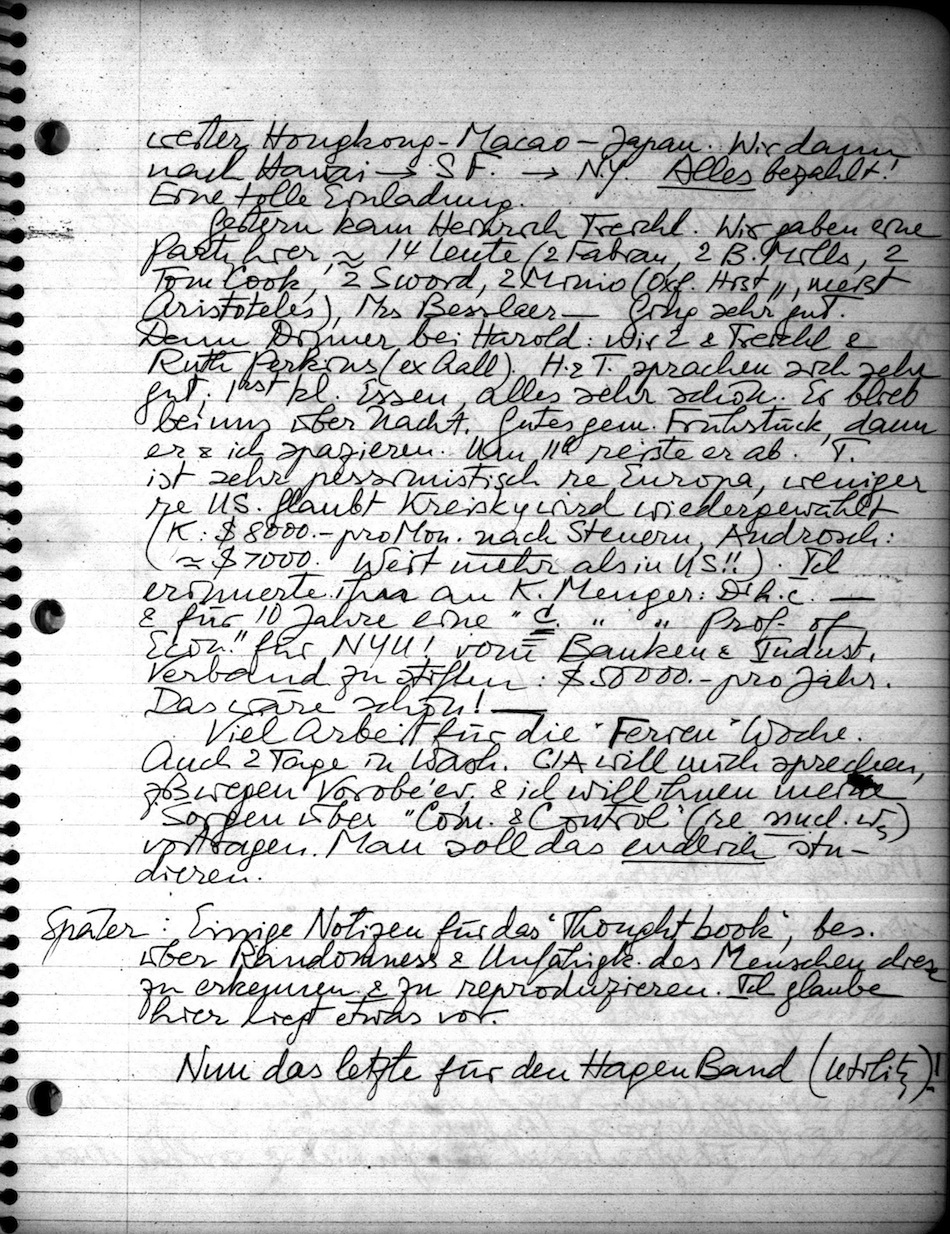 weiter Hongkong - Macao - Japan. Wir dann
nach Hawai → S F. → NY Alles bezahlt!
Eine tolle Einladung.
Gestern kam Heinrich Treichl. Wir gaben eine
Party hier, ≈ 14 Leute (2 Fabian, 2 B. Mills, 2
Tom Cook, 2 Sword, 2 Minio (Oxf. Hist ", meist
Aristoteles), Mrs Besslaer — Ging sehr gut.
Dann Dinner bei Harold: wir 2 & Treichl &
Ruth Perkins (ex Aall). H & T. sprachen sich sehr
gut; 1st kl. Essen, alles sehr schön. Er blieb
bei uns über Nacht. Gutes gem. Frühstück, dann
er & ich spazieren. Um 11h reiste er ab. T.
ist sehr pessimistisch re Europa, weniger
re US. Glaubt Kreisky wird wiedergewählt
(K: $8000.- pro Mon. nach Steuern, Androsch:
≈ $7000. Weit mehr als in US!!). Ich
erinnerte ihn an K. Menger: Dr h. c. —
& für 10 Jahre eine "C. " " Prof. of
Econ." für NYU! vom Banken & Indust.
Verband zu stiften: $50000.- pro Jahr.
Das wäre schön! —
Viel Arbeit für die "Ferien" Woche.
Auch 2 Tage in Wash. CIA will mich sprechen,
zB wegen Vorobév. & ich will ihnen meine
Sorgen über "Com. & Control" (re nucl. W.)
vortragen. Man soll das endlich stu-
dieren.
Später: Einige Notizen für das 'Thought book', bes.
über Randomness & Unfähigk. des Menschen diese
zu erkennen & zu reproduzieren. Ich glaube
hier liegt etwas vor.
Nun das letzte für den Hagen Band (Utility)!